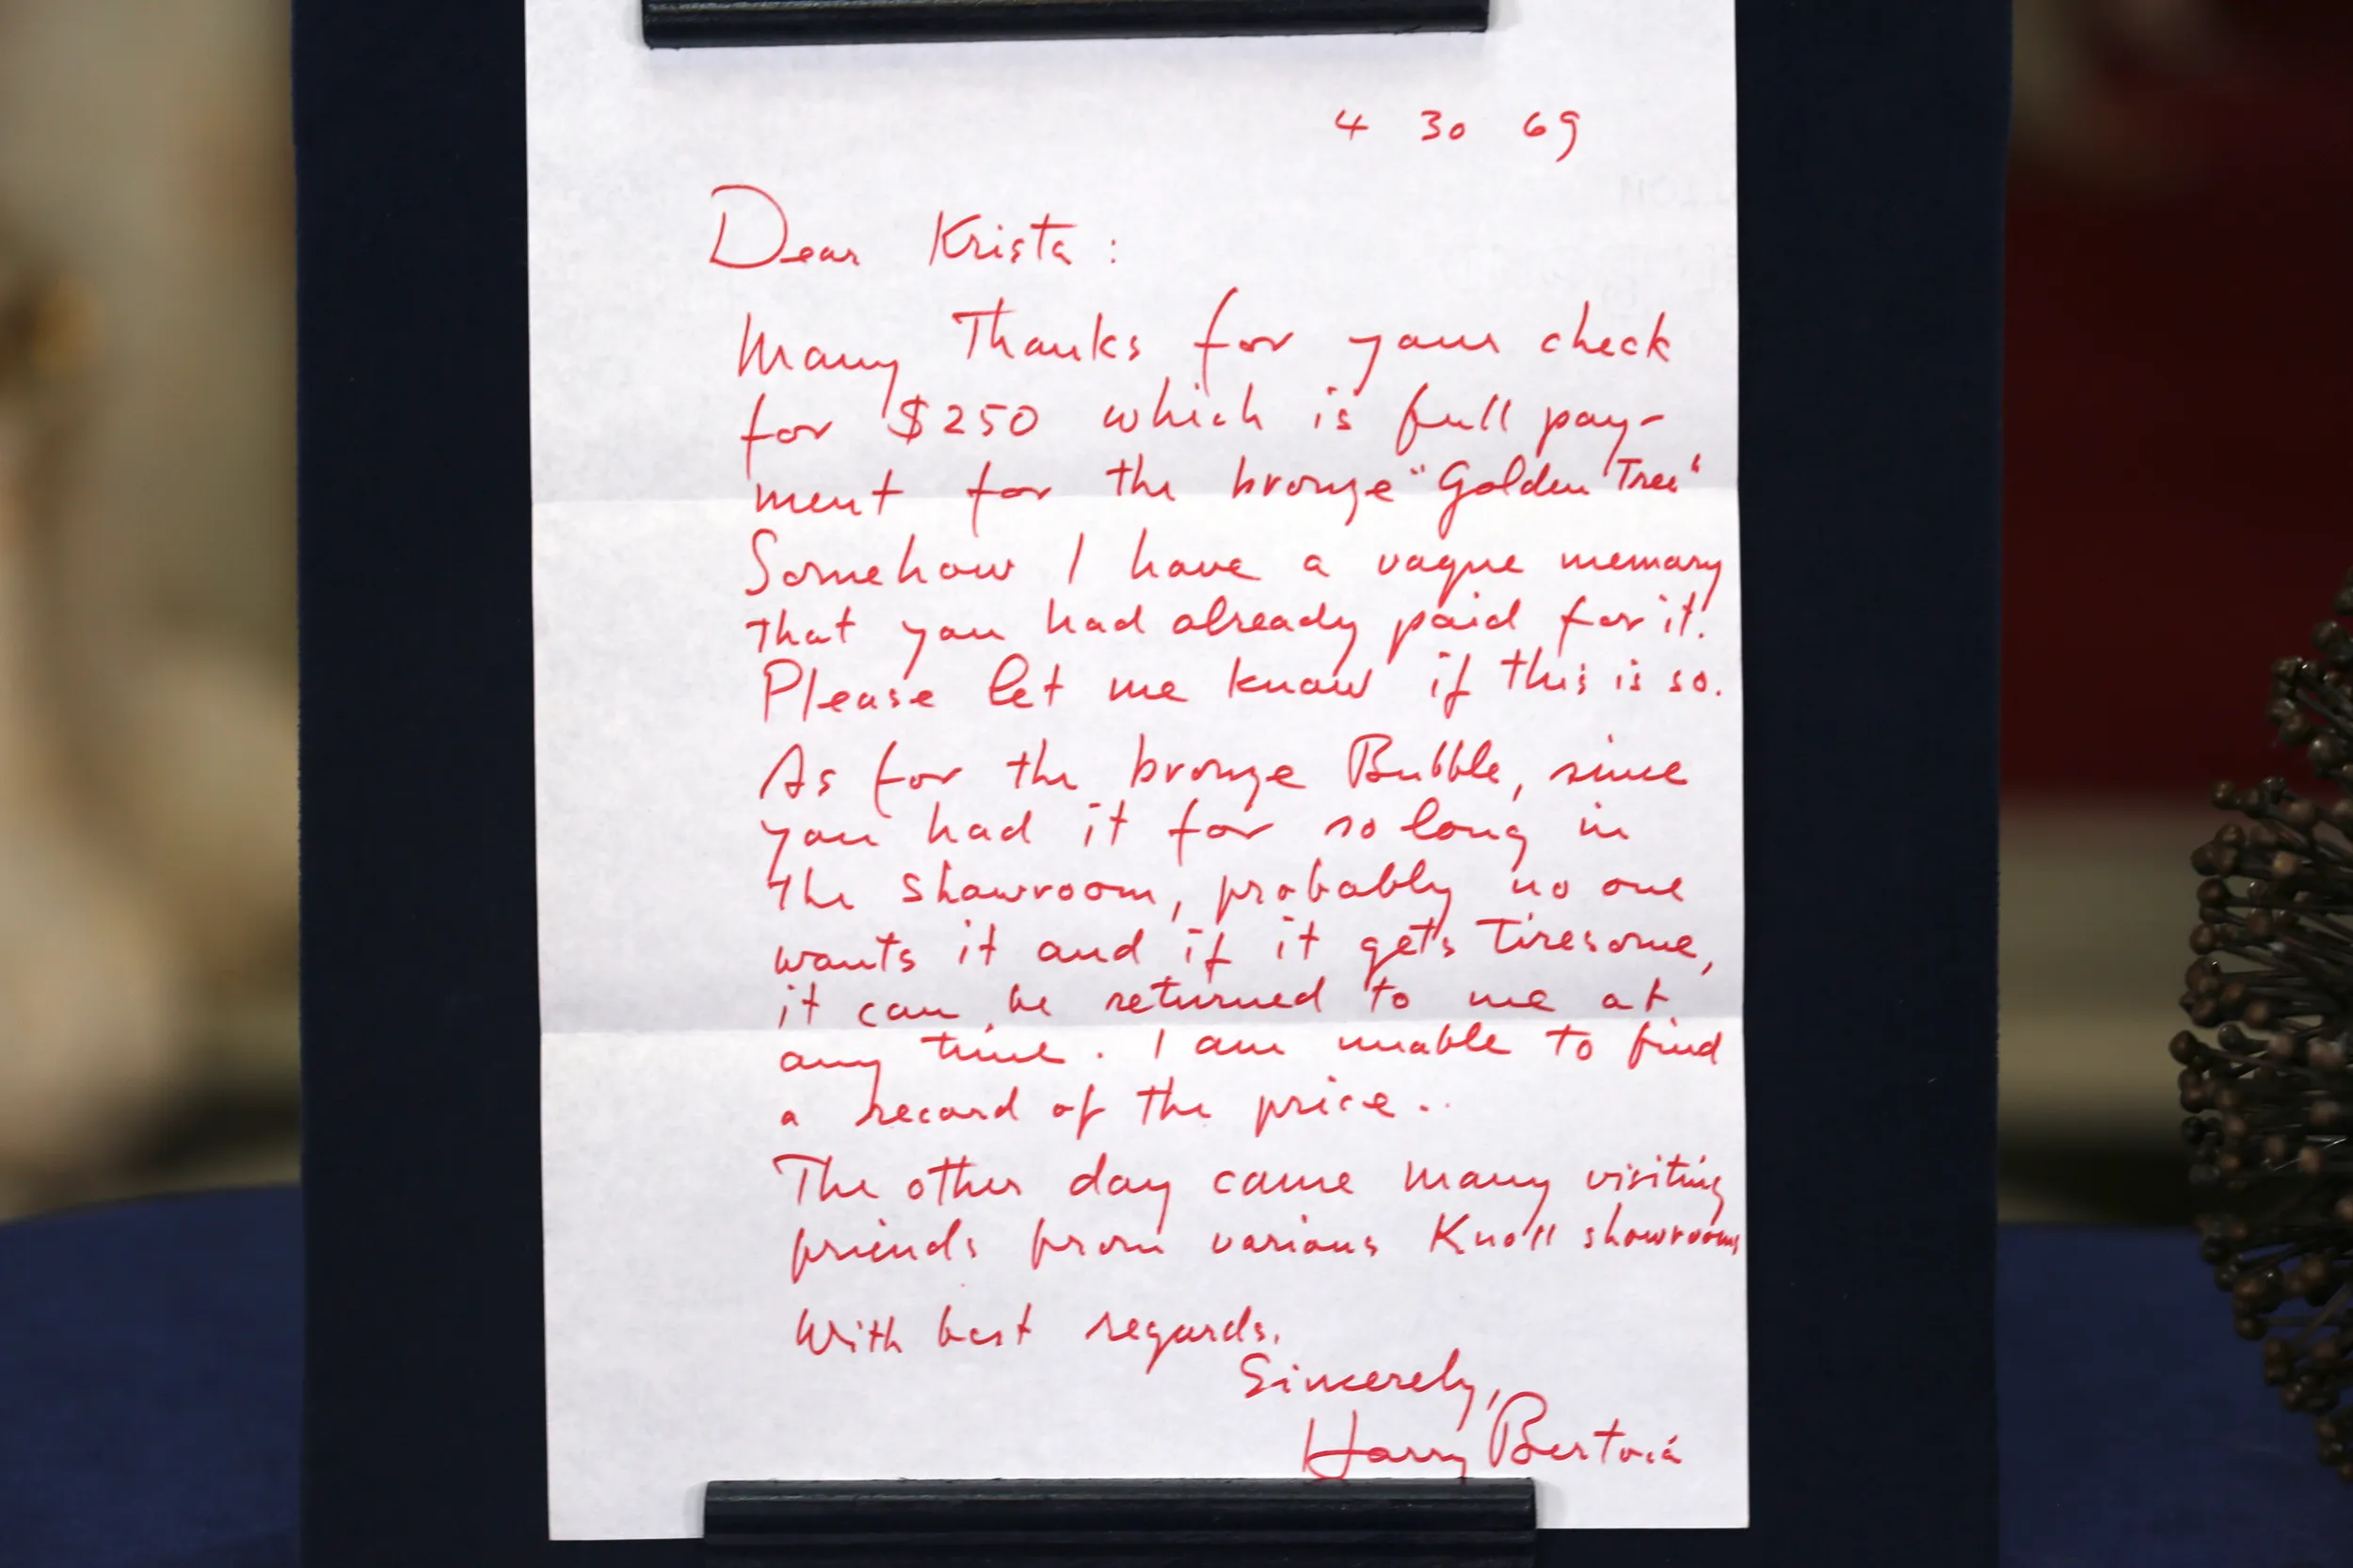 4 30 69
Dear Krista:
Many Thanks for your check
for $250 which is full pay-
ment for the bronze "Golden Tree"
Somehow I have a vague memory
that you had already paid for it!
Please let me know if this is so.
As for the bronze Bubble, since
you had it for so long in
the showroom, probably no one
wants it and if it gets tiresome,
it can be returned to me at
any time. I am unable to find
a record of the price..
The other day came many visiting
friends from various Knoll showrooms
With best regards.
Sincerely,
Harry Bertoia